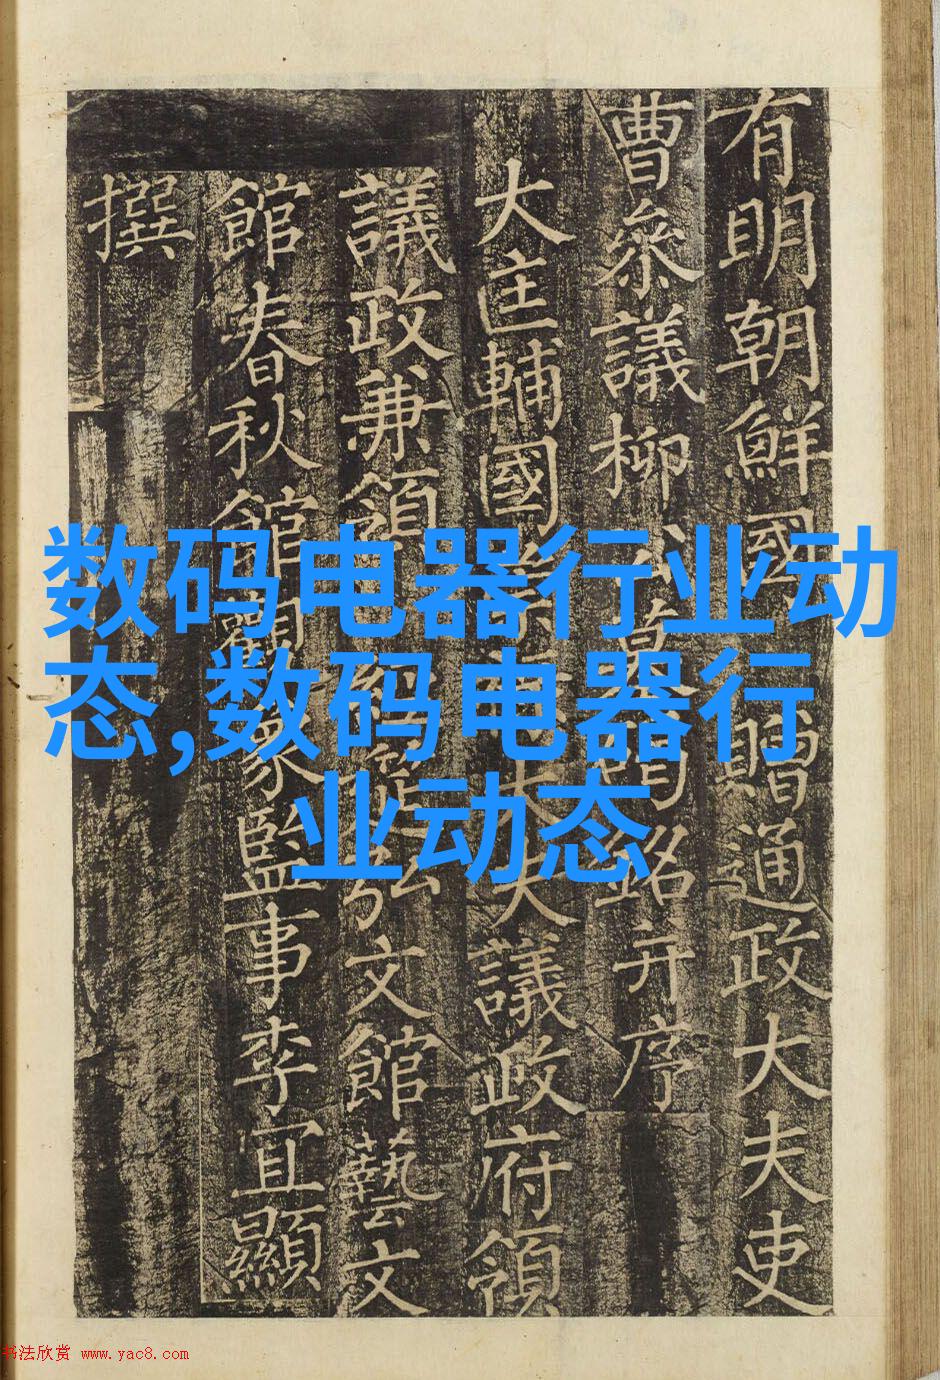 有明朝鮮國贈通政大夫吏
曹叅議柳公墓碣銘并序
大匡輔國崇祿大夫議政府領
議政兼領經筵弘文館藝文
館春秋館觀象監事李宜顯
撰
数码电器行业动
态,数码电器行
业动态
书法欣赏 www.yac8.com